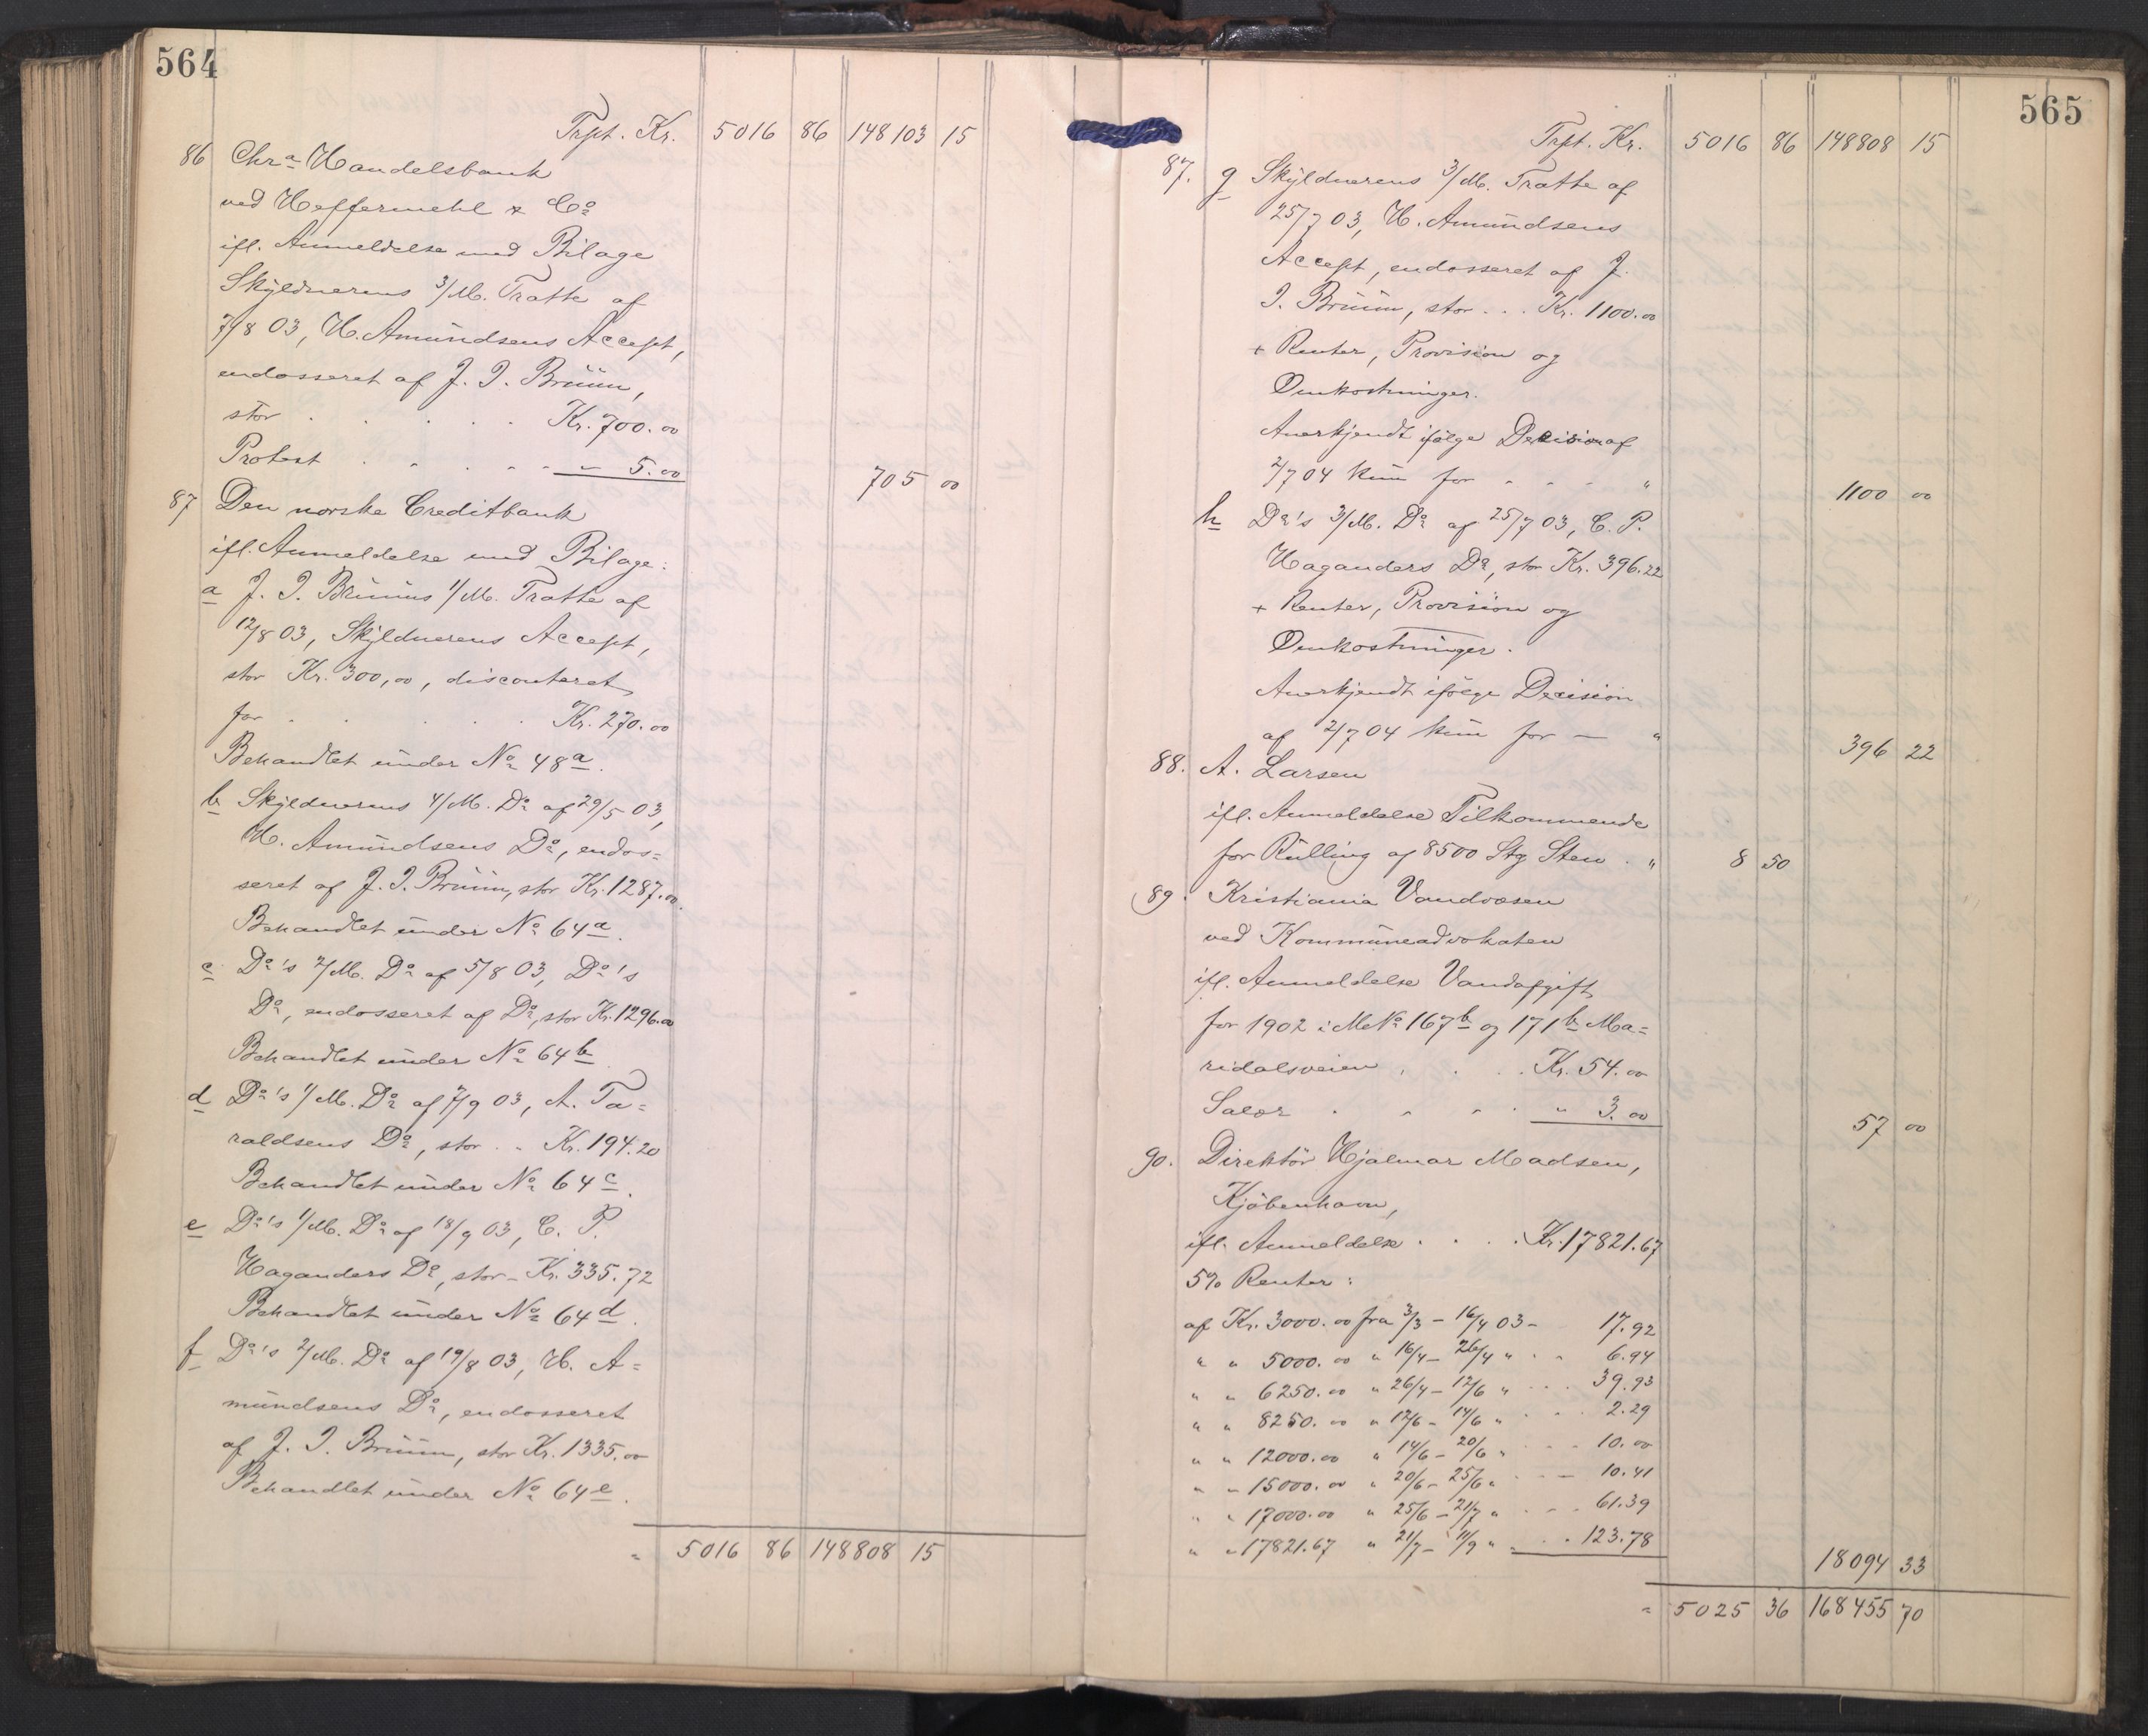 564
Trpt. Kr. 5016 86 148103 15
86 Chra Handelsbank
ved Heffermehl & Co
ifl. Anmeldelse med Bilage
Skyldnerens 3/M. Tratte af
7/8 03, H. Amundsens Accept,
endosseret af J. J. Bruun,
stor . . . . . Kr. 700.00
Protest . . . . . " 5.00 705 00
87 Den norske Creditbank
ifl. Anmeldelse med Bilage:
a J. J. Bruuns 1/M. Tratte af
12/8 03, Skyldnerens Accept,
stor Kr. 300,00, disconteret
for . . . . . Kr. 270.00
Behandlet under No 48a.
b Skyldnerens 4/M. Do af 29/5 03,
H. Amundsens Do, endos=
seret af J. J. Bruun, stor Kr. 1287.00.
Behandlet under No 64a.
c Do's 2/M. Do af 5/8 03, Do's
Do, endosseret af Do, stor Kr. 1296.00
Behandlet under No 64b.
d Do's 1/M. Do af 7/9 03, A. Ta=
raldsens Do, stor . . Kr. 194.20
Behandlet under No 64c.
e Do's 1/M. Do af 18/9 03, C. P.
Haganders Do, stor - Kr. 335.72
Behandlet under No 64d.
f Do's 2/M. Do af 19/8 03, H. A=
mundsens Do, endosseret
af J. J. Bruun, stor Kr. 1335.00
Behandlet under No 64e.
" 5016 86 148808 15
565
Trpt. Kr. 5016 86 148808 15
87. g Skyldnerens 3/M. Tratte af
25/7 03, H. Amundsens
Accept, endosseret af J.
J. Bruun, stor . . . Kr. 1100.00
+ Renter, Provision og
Omkostninger.
Anerkjendt ifølge Decision af
2/7 04 kun for - - - " 1100 00
h Do's 3/M. Do af 25/7 03, C. P.
Haganders Do, stor Kr. 396.22
+ Renter, Provision og
Omkostninger.
Anerkjendt ifølge Decision
af 2/7 04 kun for — " 396 22
88. A. Larsen
ifl. Anmeldelse Tilkommende
for Rulling af 8500 Stg Sten . " 8 50
89. Kristiania Vandvæsen
ved Kommuneadvokaten
ifl. Anmeldelse Vandafgift
for 1902 i M No 167b og 171b Ma=
ridalsveien . . . . Kr. 54.00
Salær . . . . " 3.00 57 00
90. Direktør Hjalmar Madsen,
Kjøbenhavn,
ifl. Anmeldelse . . . . Kr. 17821.67
5% Renter:
af Kr. 3000.00 fra 3/3 - 16/4 03 - 17.92
" " 5000.00 " 16/4 - 26/4 " . . 6.94
" " 6250.00 " 26/4 - 12/6 " . . . 39.93
" " 8250.00 " 12/6 - 14/6 " . . . 2.29
" " 12000.00 " 14/6 - 20/6 " . . . 10.00
" " 15000.00 " 20/6 - 25/6 " . . . 10.41
" " 17000.00 " 25/6 - 21/7 " . . . 61.39
" " 17821.67 " 21/7 - 11/9 " . . . 123.78
18094 33
" 5025 36 168455 70